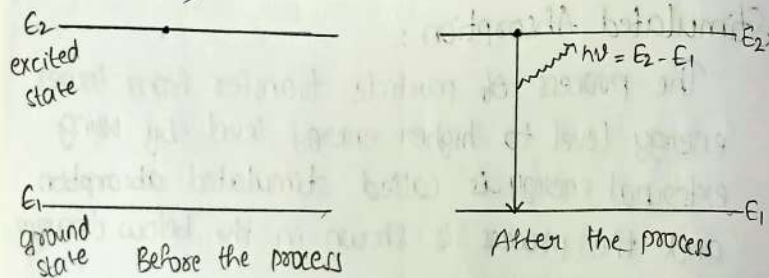 E2
excited
state
E1
ground
state
Before the process
E2
hν = E2 - E1
E1
After the process